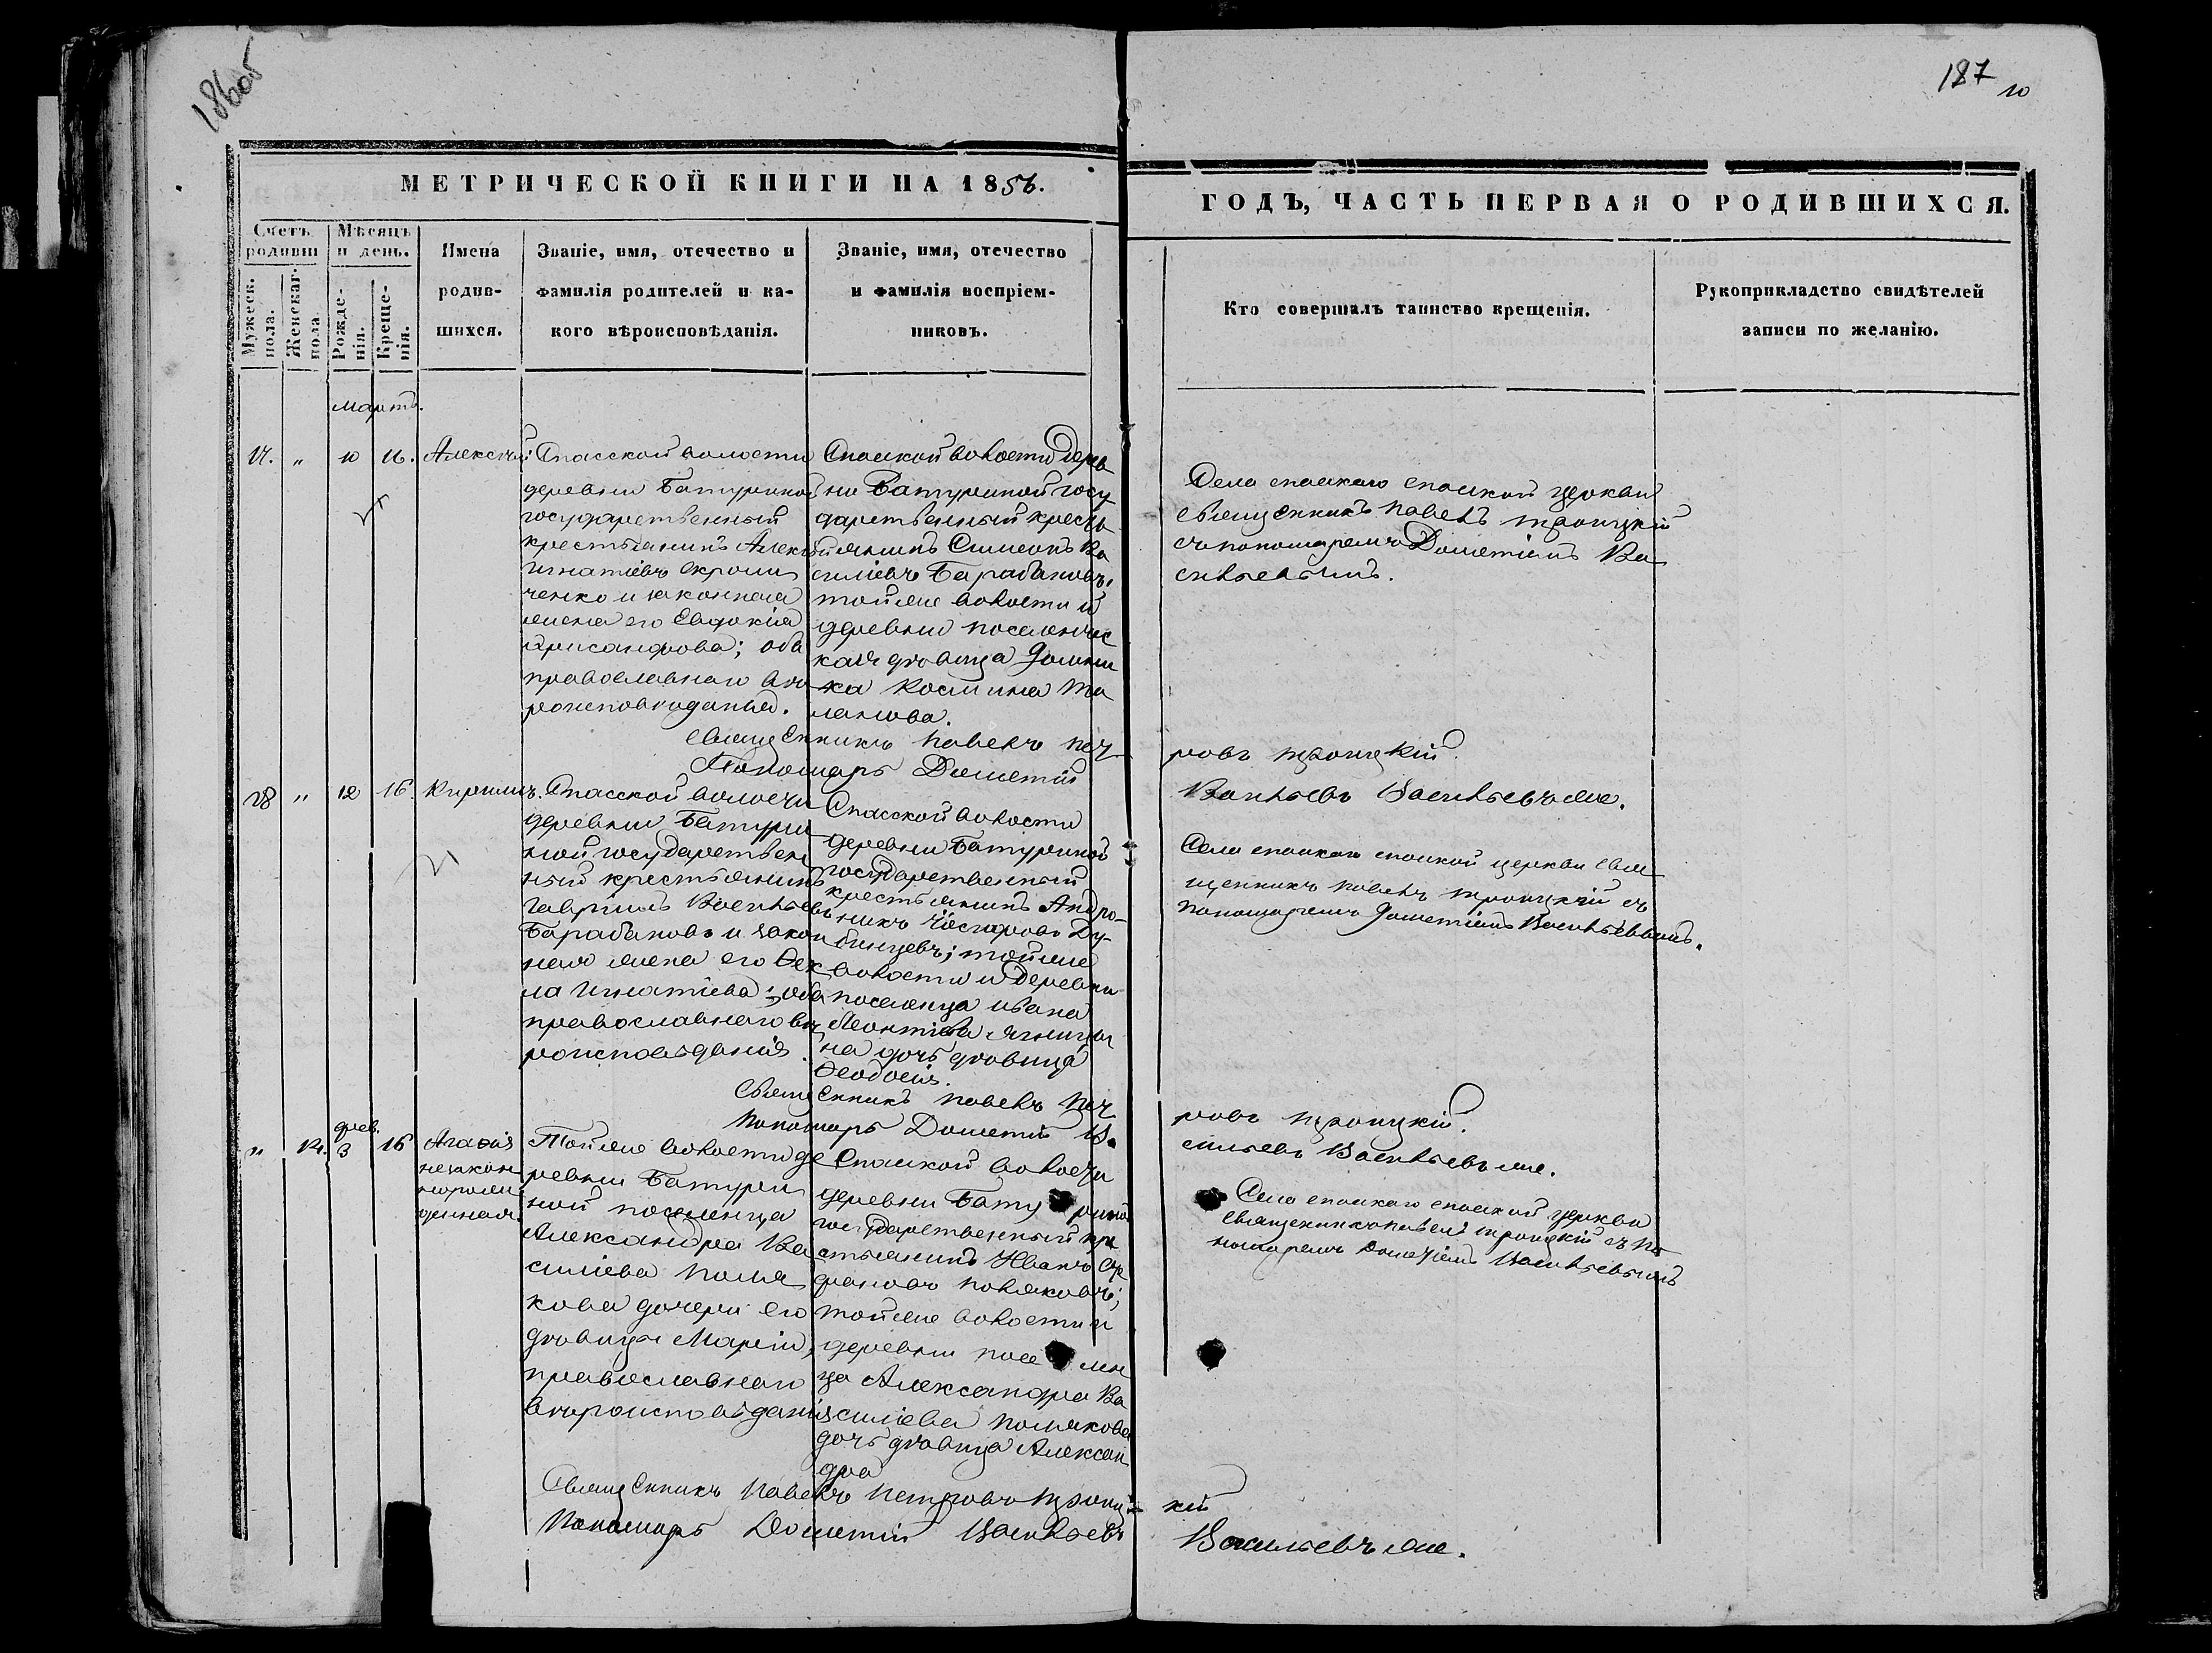 187
10
МЕТРИЧЕСКОЙ КНИГИ НА 1856.
ГОДЪ, ЧАСТЬ ПЕРВАЯ О РОДИВШИХСЯ.
Счетъ родивш
Мужеск. пола.
Женскаг. пола.
Мѣсяцъ и день.
Рожде-
нія.
Креще-
нія.
Имена
родив-
шихся.
Званіе, имя, отечество и
фамилія родителей и ка-
кого вѣроисповѣданія.
Званіе, имя, отечество
и фамилія воспріем-
никовъ.
Кто совершалъ таинство крещенія.
Рукоприкладство свидѣтелей
записи по желанію.
Мартъ.
" 10 16. Алексѣй
Спасской волости
деревни Батуриной
государственный
крестьянинъ Алексѣй
Игнатіевъ
и законная
жена его Евдокія
оба
православнаго вѣ
роисповѣданія.
Спаской волости дерев
ни Батуриной госу
дарственный кресть
янинъ Симеонъ Ва
силіевъ Барабановъ,
тойже волости и
деревни поселенчес
кая дѣвица Домни
ка Космина
Села спаскаго спаской церкви
священникъ павелъ троицкій
съ пономаремъ Дометіемъ Ва
сильевымъ.
Священникъ павелъ пет
ровъ троицкій.
Пономарь Дометій
Васильевъ Васильевъ же.
28 " 12 16. Кириллъ.
Спасской волости
деревни Батури
ной государствен
ный крестьянинъ
Гавріилъ Васильевъ
Барабановъ и закон
ная жена его Фек
ла Игнатіева; оба
православнаго вѣ
роисповѣданія.
Спасской волости
деревни Батуриной
государственный
крестьянинъ Андро-
никъ
тойже
волости и деревни
поселенца ивана
Леонтіева
на дочь дѣвица
Феодосія.
Села спаскаго спаской церкви свя
щенникъ павелъ троицкій съ
пономаремъ Дометіемъ Васильевымъ.
Священникъ павелъ пет
ровъ троицкій.
Пономарь Дометій Ва
сильевъ Васильевъ же.
фев.
" 3 16 Агафія
незакон
норож
денная
Тойже волости де
ревни Батури
ной поселенца
Александра Ва
силіева Поля
кова дочери его
дѣвицы Маріи,
православнаго
вѣроисповѣданія
Спаской волости
деревни Батурино
государственный кре
стьянинъ Иванъ
поляковъ;
тойже волости и
деревни поселен
ца Александра Ва
силіева полякова
дочь дѣвица Алексан
дра
Села спаскаго спаской церкви
священникъ павелъ троицкій съ по
номаремъ Дометіемъ Васильевымъ
Священникъ Павелъ петровъ троиц
кій
Пономарь Дометій Васильевъ
Васильевъ же.